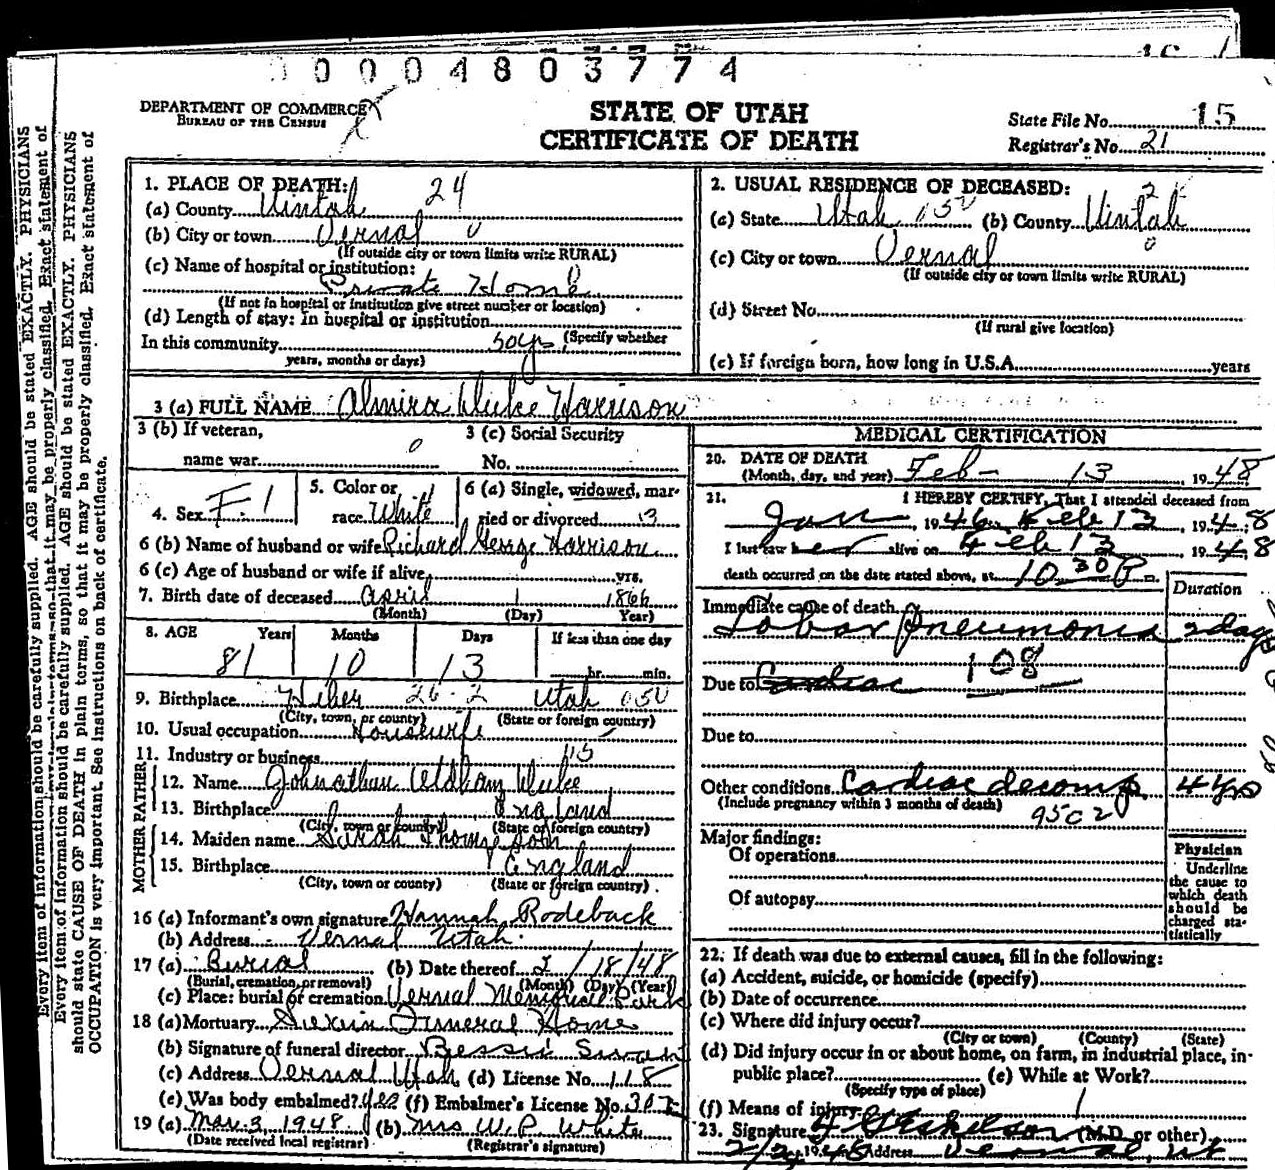 0004803774
DEPARTMENT OF COMMERCE
BUREAU OF THE CENSUS
STATE OF UTAH
CERTIFICATE OF DEATH
State File No. 15
Registrar's No. 21
Every item of information should be carefully supplied. AGE should be stated EXACTLY. PHYSICIANS
should state CAUSE OF DEATH in plain terms, so that it may be properly classified. Exact statement of
OCCUPATION is very important. See instructions on back of certificate.
1. PLACE OF DEATH: 24
(a) County Uintah
(b) City or town Vernal 0
(If outside city or town limits write RURAL)
(c) Name of hospital or institution:
Private Home
(If not in hospital or institution give street number or location)
(d) Length of stay: In hospital or institution
(Specify whether
In this community 50 yrs
years, months or days)
2. USUAL RESIDENCE OF DECEASED:
(a) State Utah 050 (b) County Uintah
(c) City or town Vernal 0
(If outside city or town limits write RURAL)
(d) Street No.
(If rural give location)
(e) If foreign born, how long in U.S.A. years
3 (a) FULL NAME Almira Duke Harrison
3 (b) If veteran,
name war 0
3 (c) Social Security
No.
4. Sex F. 1
5. Color or
race White 1
6 (a) Single, widowed, mar-
ried or divorced 3
6 (b) Name of husband or wife Richard George Harrison
6 (c) Age of husband or wife if alive, yrs.
7. Birth date of deceased April 1 1866
(Month) (Day) Year)
8. AGE Years Months Days If less than one day
81 10 13 hr. min.
9. Birthplace Heber 26-2 Utah 050
(City, town, or county) (State or foreign country)
10. Usual occupation Housewife
11. Industry or business 115
FATHER
12. Name Johnathan Oldham Duke
13. Birthplace England
(City, town or county) (State or foreign country)
MOTHER
14. Maiden name Sarah Thompson
15. Birthplace England
(City, town or county) (State or foreign country)
16 (a) Informant's own signature Hannah Rodeback
(b) Address Vernal Utah.
17 (a) Burial (b) Date thereof 2/18/48
(Burial, cremation, or removal) (Month) (Day) (Year)
(c) Place: burial or cremation Vernal Memorial Park
18 (a) Mortuary Funeral Home
(b) Signature of funeral director Bessie
(c) Address Vernal Utah (d) License No. 118
(e) Was body embalmed? yes (f) Embalmer's License No. 307
19 (a) Mar. 3, 1948 (b) Mrs W.P. White
(Date received local registrar) (Registrar's signature)
MEDICAL CERTIFICATION
20. DATE OF DEATH
(Month, day, and year) Feb- 13, 1948
21. I HEREBY CERTIFY, That I attended deceased from
Jan, 1946, Feb 13, 1948
I last saw her alive on Feb 13 1948
death occurred on the date stated above, at 10 30 P m.
Duration
Immediate cause of death
Lobar Pneumonia 2 days
108
Due to Cardiac
Due to
Other conditions Cardiac decomp. 4 yrs
(Include pregnancy within 3 months of death)
95C2
Major findings:
Of operations
Of autopsy
Physician
Underline
the cause to
which death
should be
charged sta-
tistically
22. If death was due to external causes, fill in the following:
(a) Accident, suicide, or homicide (specify)
(b) Date of occurrence
(c) Where did injury occur?
(City or town) (County) (State)
(d) Did injury occur in or about home, on farm, in industrial place, in-
public place? (e) While at Work?
(Specify type of place)
(f) Means of injury 1
23. Signature (M.D. or other)
1948 Address Vernal, Ut